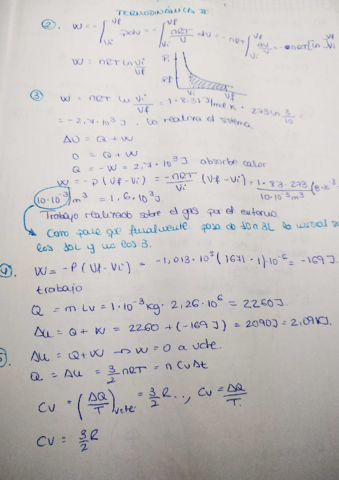 TERMODINÁMICA II
2. W = - ∫Vi Vf p dv = - ∫Vi Vf nRT/V dV = - nRT ∫Vi Vf dv/V = - nRT [ln V]Vi Vf
W = nRT ln Vi/Vf
Vi Vf
3 W = nRT ln Vi/Vf = 1 · 8.31 J/mol K · 273 ln 3/10 =
= -2,7·10³ J, lo realiza el sistema
ΔU = Q + W
0 = Q + W
Q = -W = 2,7·10³ J absorbe calor
W = -P (Vf - Vi) = -nRT/Vi (Vf - Vi) = 1·8.3·273/10·10⁻³m³
10·10⁻³ m³ = 1,6·10³ J
Trabajo realizado sobre el gas por el entorno
Como pone que finalmente pasa de 10 a 3L lo inicial
los 10L y no los 3.
4. W = -P (Vf - Vi) = -1,013·10⁵ (1671 - 1)·10⁻⁶ = -169 J
trabajo
Q = m Lv = 1·10⁻³ kg · 2,26·10⁶ = 2260 J
Δu = Q + W = 2260 + (-169 J) = 2090 J = 2,09 KJ.
5. Δu = Q + W → W = 0 a vcte.
Q = Δu = 3/2 nRT = n Cv Δt
Cv = (ΔQ/T)vcte = 3/2 R .., Cv = ΔQ/T.
Cv = 3/2 R